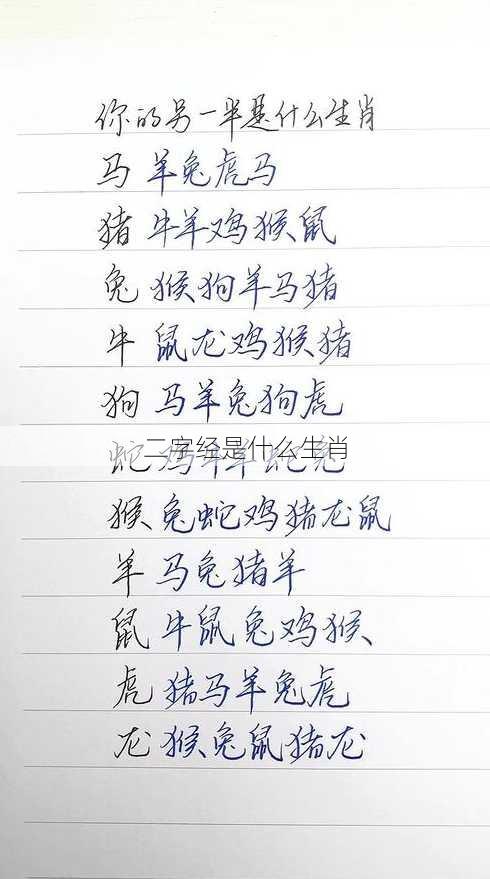 你的另一半是什么生肖
马 羊兔虎马
猪 牛羊鸡猴鼠
兔 猴狗羊马猪
牛 鼠龙鸡猴猪
狗 马羊兔狗虎
二字经是什么生肖
蛇 鸡牛羊蛇兔
猴 兔蛇鸡猪龙鼠
羊 马兔猪羊
鼠 牛鼠兔鸡猴
虎 猪马羊兔虎
龙 猴兔鼠猪龙